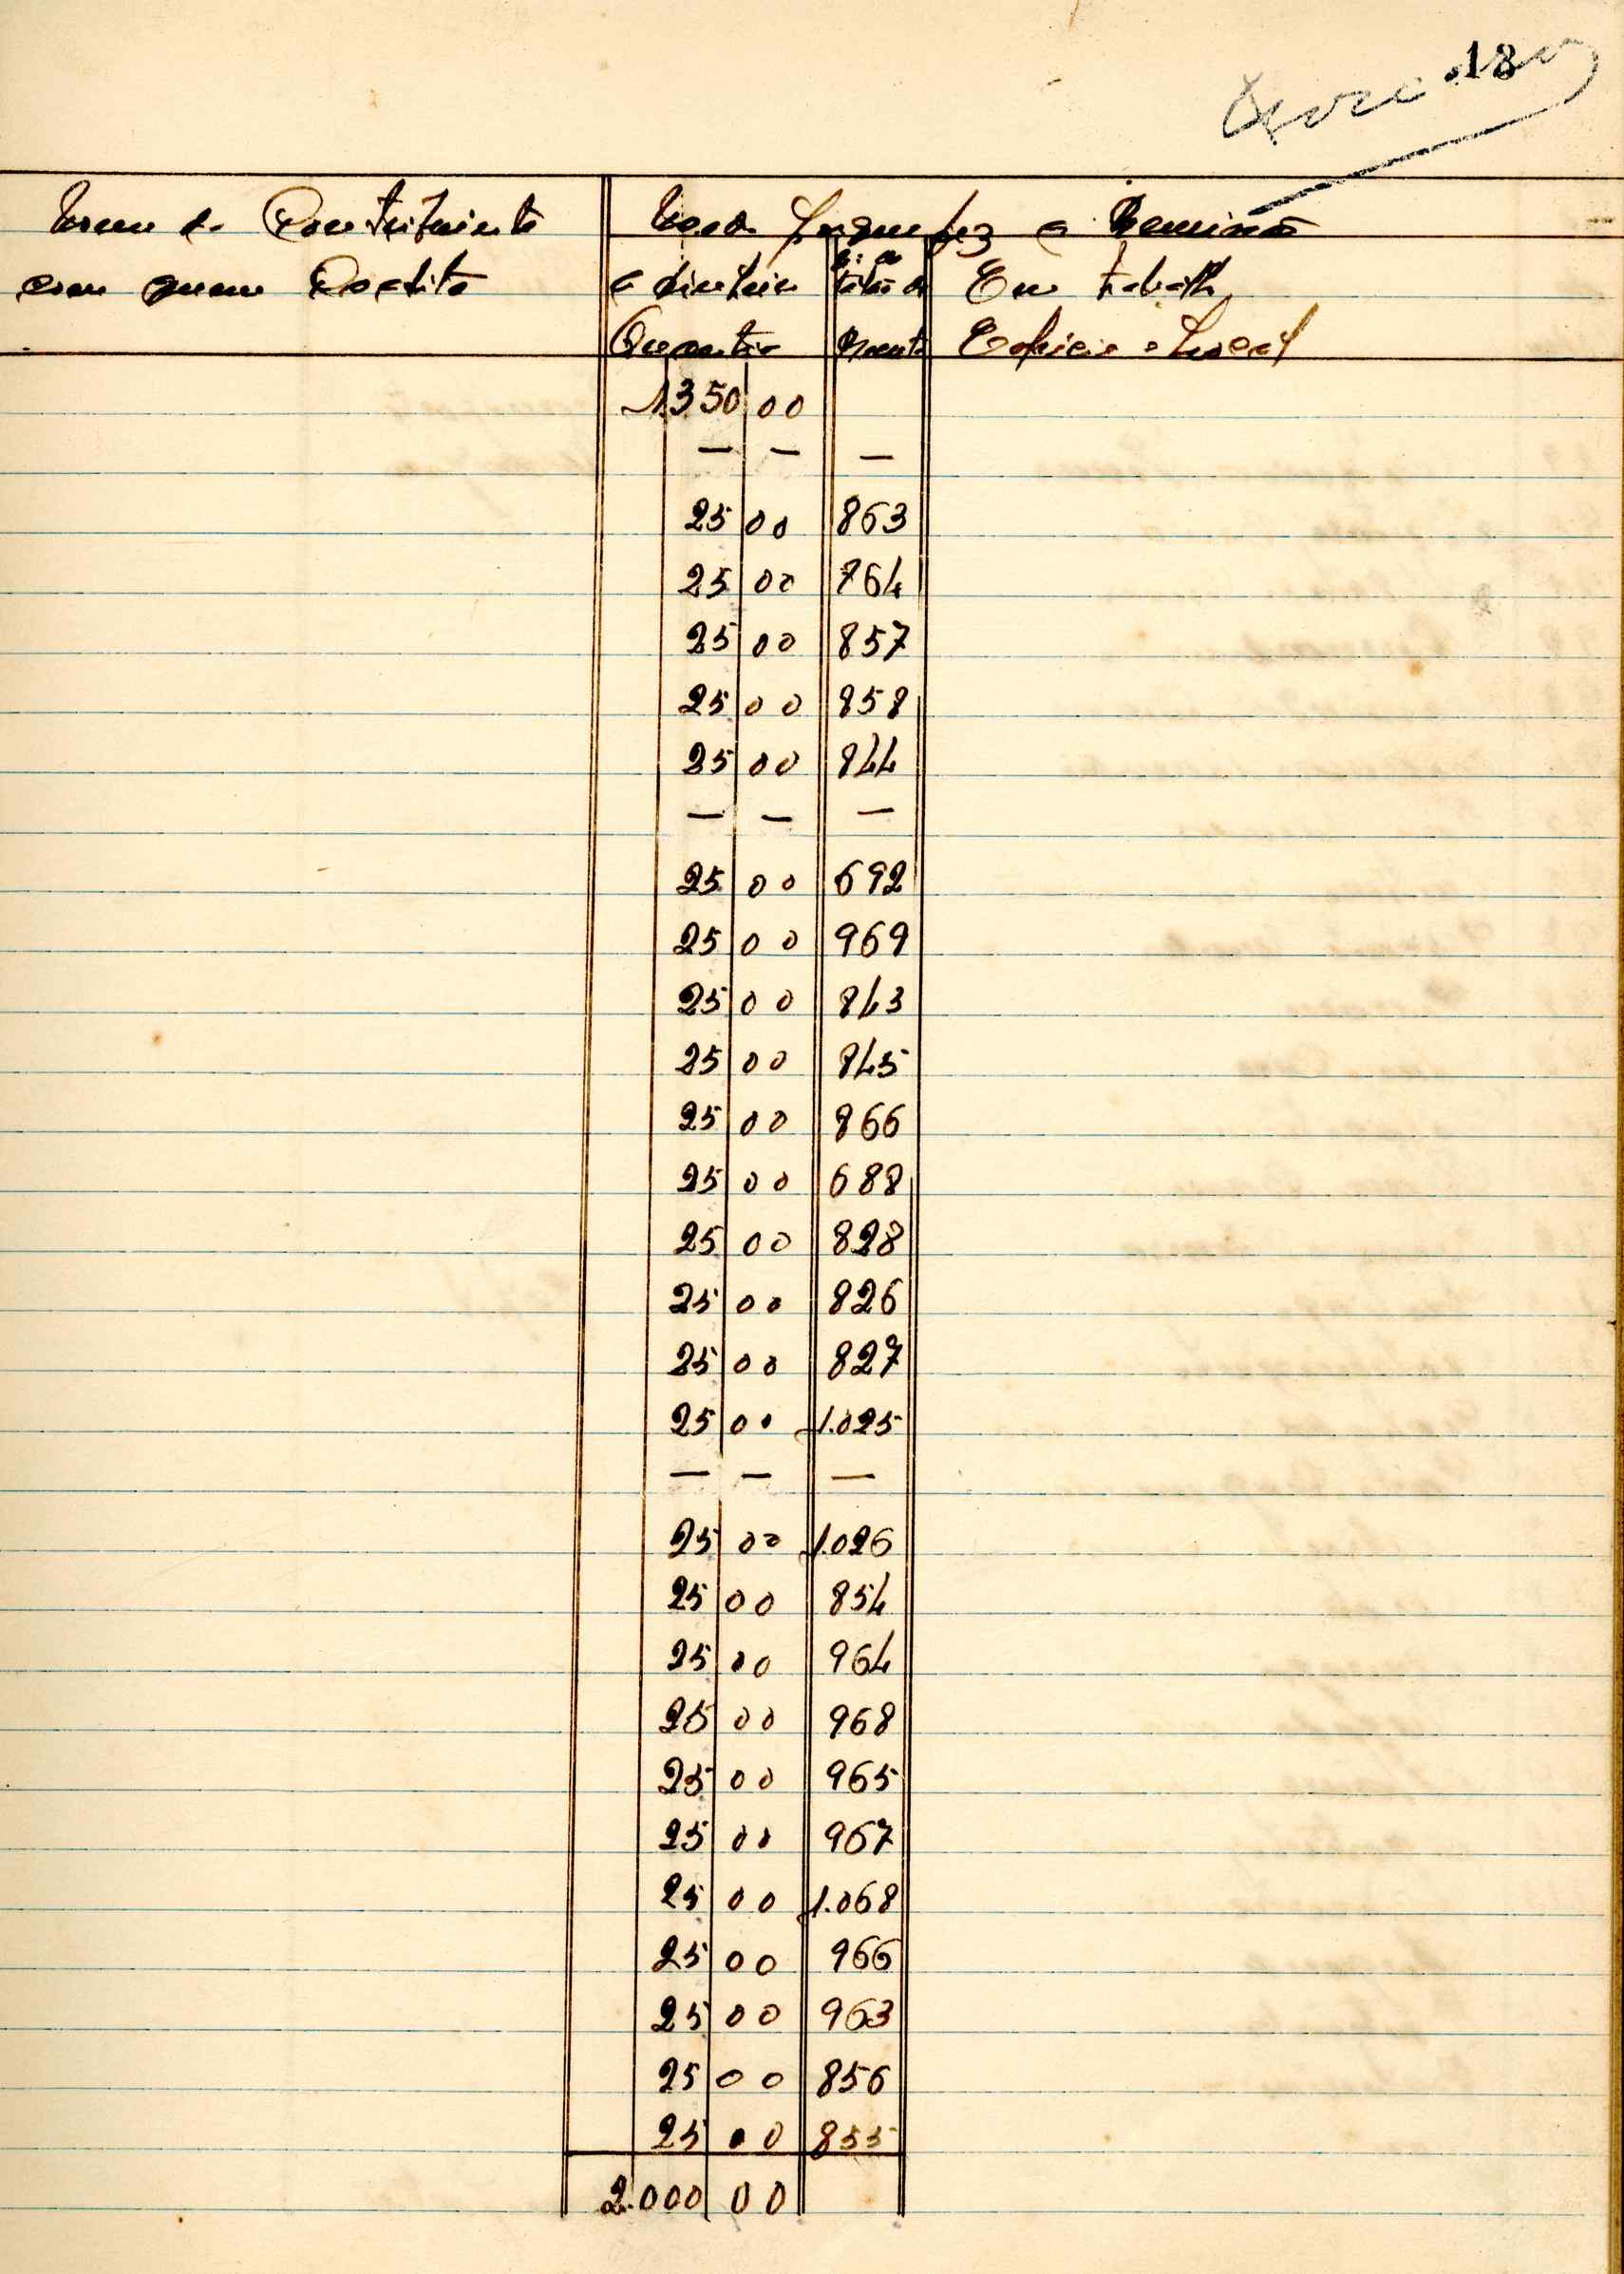 18
Nome do Contribuinte Modo porque fez a Remissão
com quem Coabita a dinheiro Nº do talão da Em trabalho
Quantia Receita Espécie e Local
1.350 00
— — —
25 00 863
25 00 764
25 00 857
25 00 858
25 00 844
— — —
25 00 692
25 00 969
25 00 843
25 00 845
25 00 866
25 00 688
25 00 828
25 00 826
25 00 827
25 00 1.025
— — —
25 00 1.026
25 00 854
25 00 964
25 00 968
25 00 965
25 00 967
25 00 1.068
25 00 966
25 00 963
25 00 856
25 00 855
2.000 00